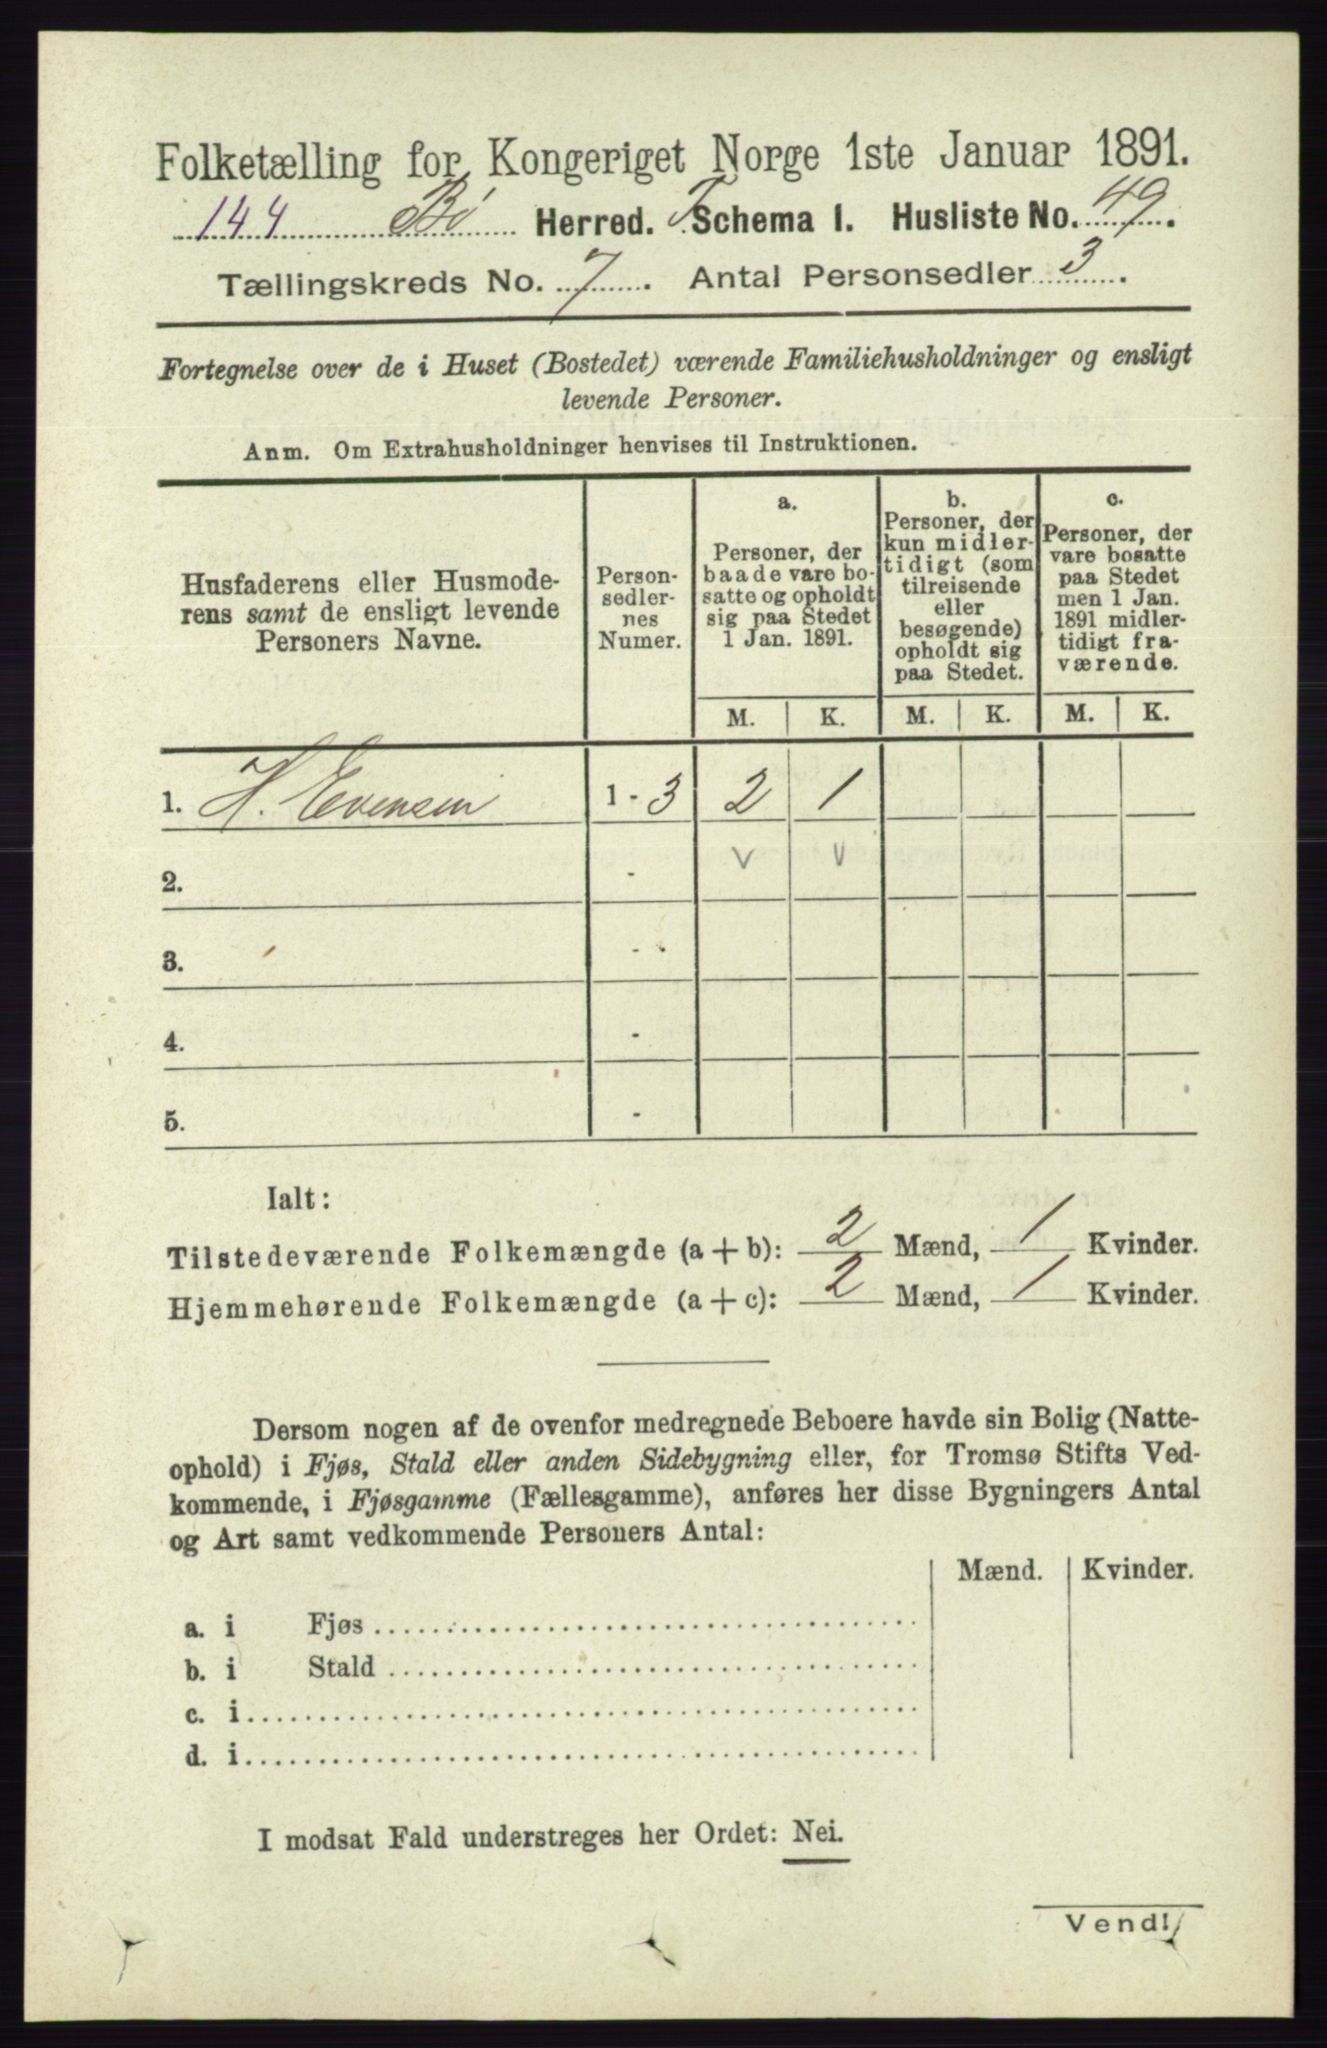 Folketælling for Kongeriget Norge 1ste Januar 1891.
144 Bø Herred. T. Schema 1. Husliste No. 49.
Tællingskreds No. 7. Antal Personsedler 3.
Fortegnelse over de i Huset (Bostedet) værende Familiehusholdninger og ensligt
levende Personer.
Anm. Om Extrahusholdninger henvises til Instruktionen.
Husfaderens eller Husmode-
rens samt de ensligt levende
Personers Navne.
Person-
sedler-
nes
Numer.
a.
Personer, der
baade vare bo-
satte og opholdt
sig paa Stedet
1 Jan. 1891.
b.
Personer, der
kun midler-
tidigt (som
tilreisende
eller
besøgende)
opholdt sig
paa Stedet.
c.
Personer, der
vare bosatte
paa Stedet
men 1 Jan.
1891 midler-
tidigt fra-
værende.
M. K. M. K. M. K.
1. H. Evensen 1 - 3 2 1
2. - v v
3. -
4. -
5. -
Ialt:
Tilstedeværende Folkemængde (a + b): 2 Mænd, 1 Kvinder.
Hjemmehørende Folkemængde (a + c): 2 Mænd, 1 Kvinder.
Dersom nogen af de ovenfor medregnede Beboere havde sin Bolig (Natte-
ophold) i Fjøs, Stald eller anden Sidebygning eller, for Tromsø Stifts Ved-
kommende, i Fjøsgamme (Fællesgamme), anføres her disse Bygningers Antal
og Art samt vedkommende Personers Antal:
Mænd. Kvinder.
a. i Fjøs
b. i Stald
c. i
d. i
I modsat Fald understreges her Ordet: Nei.
Vend!